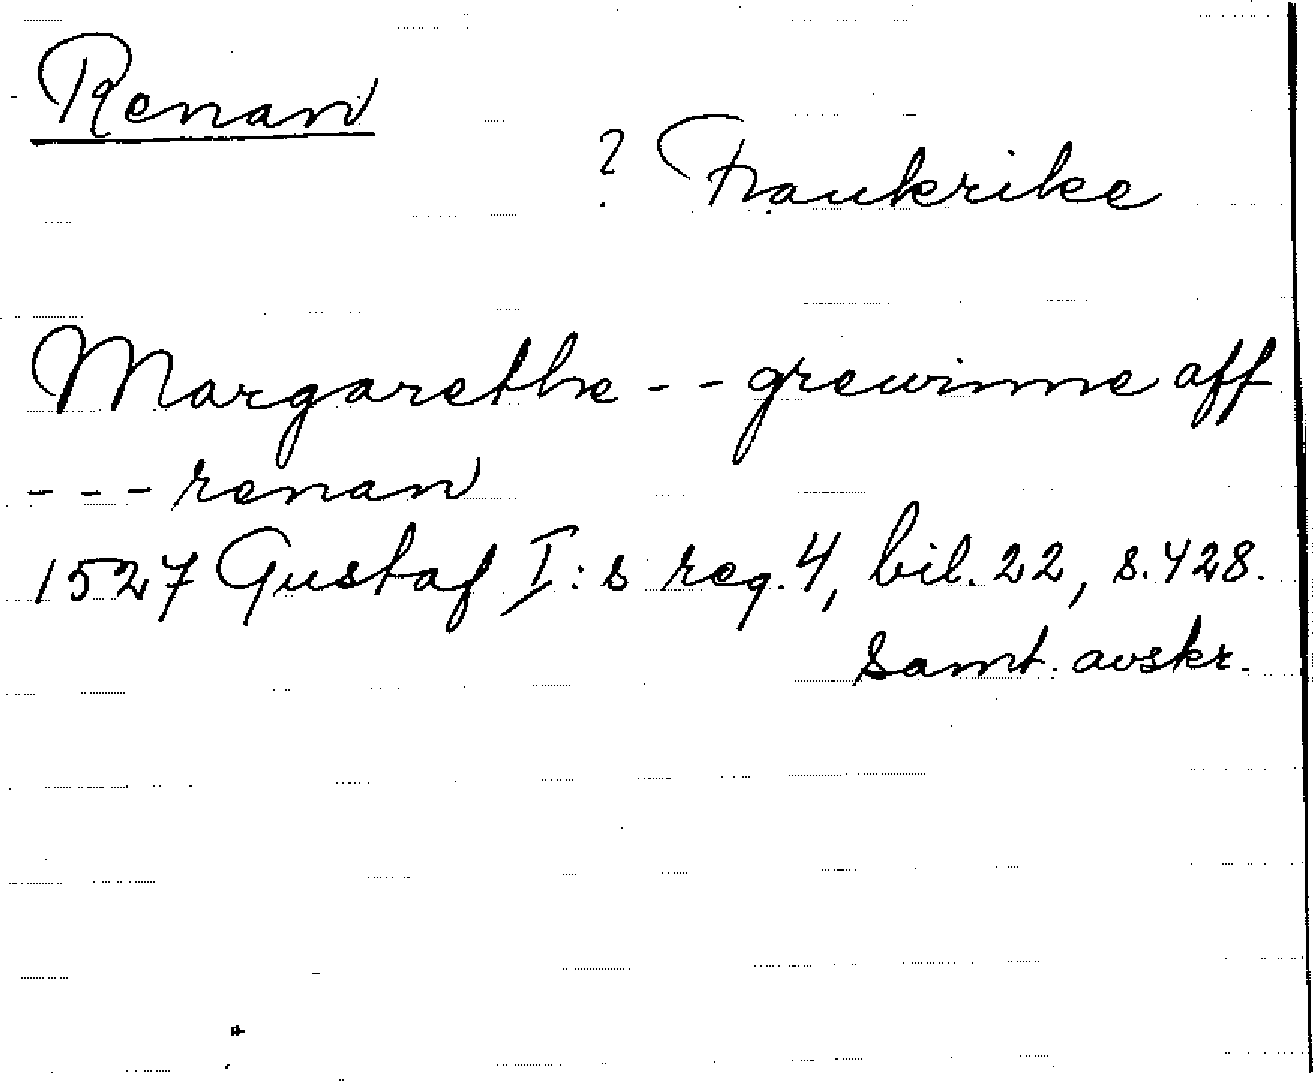 Renan
? Frankrike
Margarethe - - grewinne aff
- - - renan
1527 Gustaf I:s reg. 4, bil. 22, s. 428.
samt. avskr.